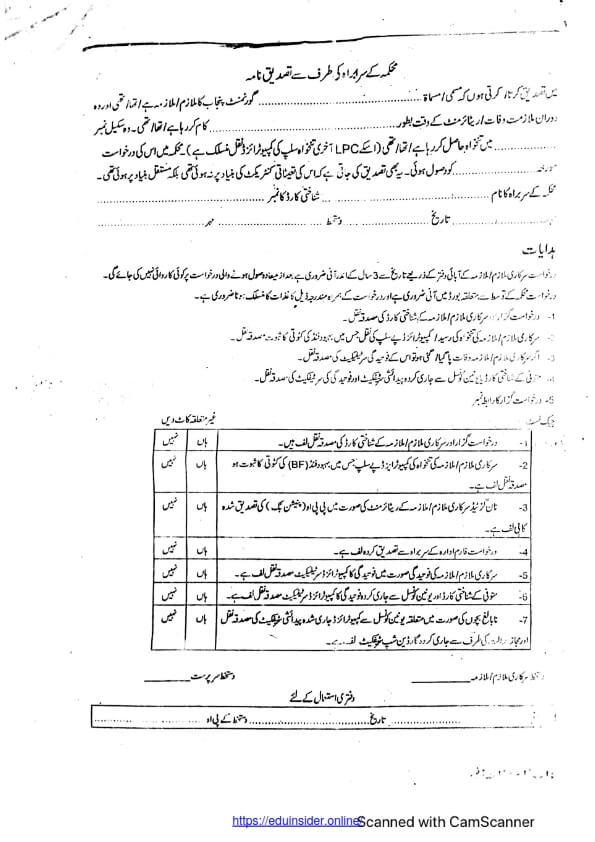 محکمہ کے سربراہ کی طرف سے تصدیق نامہ
میں تصدیق کرتا/ کرتی ہوں کہ مسمی/ مسماۃ ........................ گورنمنٹ پنجاب کا ملازم/ ملازمہ ہے/ تھا/ تھی اور وہ
دوران ملازمت وفات/ ریٹائرمنٹ کے وقت بطور ........................ کام کر رہا ہے/ تھا/ تھی۔ وہ سکیل نمبر
........................ میں تنخواہ حاصل کر رہا ہے/ تھا/ تھی (اسکے LPC آخری تنخواہ سلپ کی کمپیوٹرائزڈ نقل منسلک ہے) محکمہ میں اس کی درخواست
مورخہ ........................ کو وصول ہوئی۔ یہ بھی تصدیق کی جاتی ہے کہ اس کی تعیناتی کنٹریکٹ کی بنیاد پر نہ ہوئی تھی بلکہ مستقل بنیاد پر ہوئی تھی۔
محکمہ کے سربراہ کا نام ........................ شناختی کارڈ کا نمبر ........................
........................ تاریخ ........................ دستخط ........................ مہر ........................
ہدایات
درخواست سرکاری ملازم/ ملازمہ کے آبائی دفتر کے ذریعے تاریخ سے 3 سال کے اندر آنی ضروری ہے بعد از میعاد وصول ہونے والی درخواست پر کوئی کاروائی نہیں کی جائے گی۔
درخواست محکمہ کے توسط سے متعلقہ بورڈ میں آنی ضروری ہے اور درخواست کے ہمراہ مندرجہ ذیل کاغذات کا منسلک ہونا ضروری ہے۔
1- درخواست گزار/ سرکاری ملازم/ ملازمہ کے شناختی کارڈ کی مصدقہ نقل۔
سرکاری ملازم/ ملازمہ کی تنخواہ کی رسید/ کمپیوٹرائزڈ پے سلپ کی نقل جس میں بہبود فنڈ کی کٹوتی کا ثبوت مصدقہ نقل۔
3- اگر سرکاری ملازم/ ملازمہ وفات پا گیا/ گئی ہو تو اس کے فوتیدگی سرٹیفکیٹ کی مصدقہ نقل۔
4- متوفی کے شناختی کارڈ یا یونین کونسل سے جاری کردہ پیدائشی سرٹیفکیٹ اور فوتیدگی کی سرٹیفکیٹ کی مصدقہ نقل۔
5- درخواست گزار کا رابطہ نمبر
چیک لسٹ غیر متعلقہ کاٹ دیں
1- درخواست گزار اور سرکاری ملازم/ ملازمہ کے شناختی کارڈ کی مصدقہ نقل لف ہیں۔ ہاں نہیں
2- سرکاری ملازم/ ملازمہ کی تنخواہ کی کمپیوٹرائزڈ پے سلپ جس میں بہبود فنڈ (BF) کی کٹوتی کا ثبوت ہو ہاں نہیں
مصدقہ نقل لف ہے۔
3- نان گزٹیڈ سرکاری ملازم/ ملازمہ کے ریٹائرمنٹ کی صورت میں پی پی او (پنشن بک) کی تصدیق شدہ ہاں نہیں
کاپی لف ہے۔
4- درخواست فارم ادارہ کے سربراہ سے تصدیق کردہ لف ہے۔ ہاں نہیں
5- سرکاری ملازم/ ملازمہ کی فوتیدگی صورت میں فوتیدگی کا کمپیوٹرائزڈ سرٹیفکیٹ مصدقہ نقل لف ہے۔ ہاں نہیں
6- متوفی کے شناختی کارڈ اور یونین کونسل سے جاری کردہ فوتیدگی کا کمپیوٹرائزڈ سرٹیفکیٹ مصدقہ نقل لف ہے۔ ہاں نہیں
7- نابالغ بچوں کی صورت میں متعلقہ یونین کونسل سے کمپیوٹرائزڈ جاری شدہ پیدائشی سرٹیفکیٹ کی مصدقہ نقل ہاں نہیں
اور مجاز عدالت کی طرف سے جاری کردہ گارڈین شپ سرٹیفکیٹ لف ہے۔
دستخط سرکاری ملازم/ ملازمہ ____________ دستخط سرپرست ____________
دفتری استعمال کے لئے
........................ تاریخ ........................ دستخط کے پی او ........................
https://eduinsider.online
Scanned with CamScanner